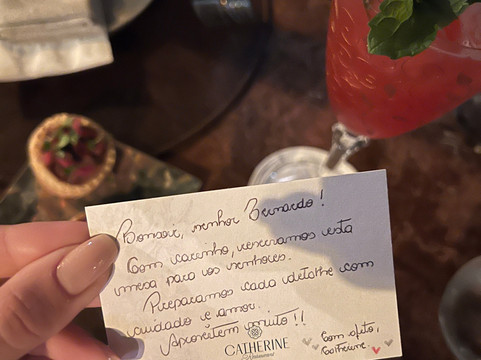 Bonsoir, senhor Bernardo!
Com carinho, reservamos esta
mesa para os senhores.
Preparamos cada detalhe com
cuidado e amor.
Aproveitem muito!!
CATHERINE
Com afeto,
Catherine